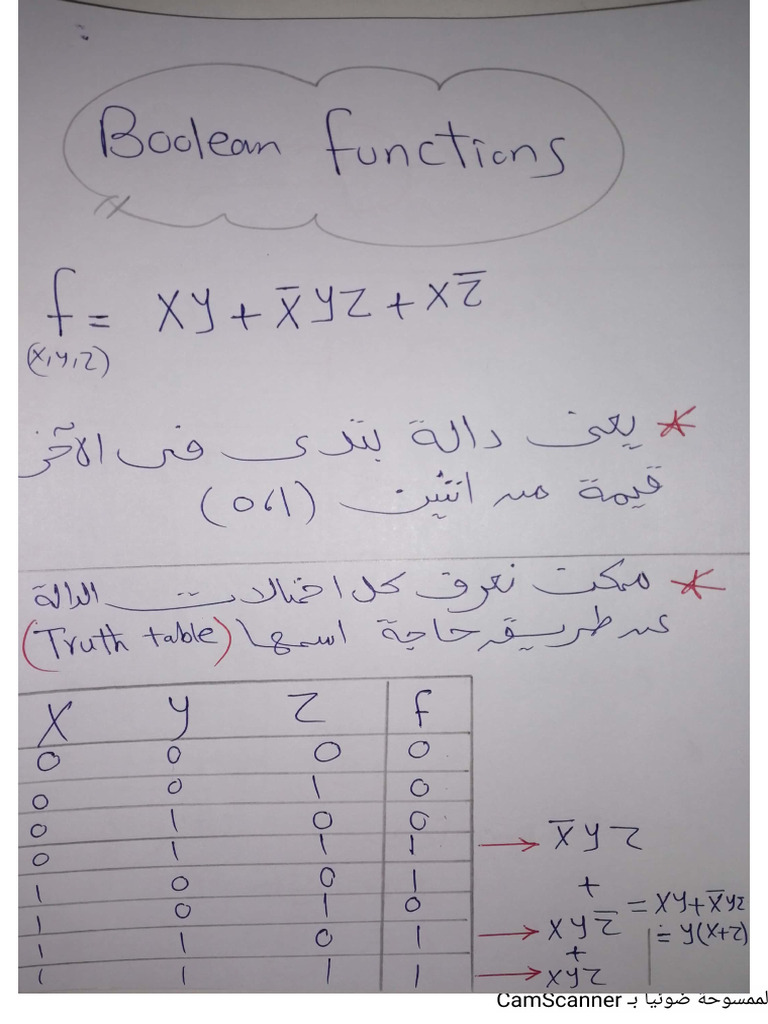 Boolean functions
f = xy + x̄yz + xz̄
(x,y,z)
* يعنى دالة بتدى فى الآخر
قيمة من اتنين (0،1)
* ممكن نعرف كل احتمالات الدالة
عن طريق حاجة اسمها (Truth table)
X y z f
0 0 0 0
0 0 1 0
0 1 0 0
0 1 1 1 → x̄yz
+
1 0 0 1
1 0 1 0 = xy+x̄yz
1 1 0 1 → xyz̄ = y(x+z)
+
1 1 1 1 → xyz
الممسوحة ضوئيا بـ CamScanner